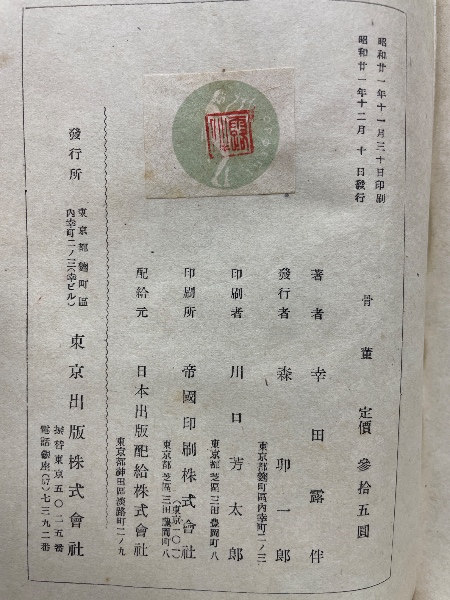 昭和廿一年十一月三十日印刷
昭和廿一年十二月十日發行
骨董 定價 參拾五圓
著者 幸田露伴
發行者 森卯一郎
東京都麴町區內幸町二ノ三
印刷者 川口芳太郎
東京都芝區三田豐岡町八
印刷所 帝國印刷株式會社
(東京一〇一)
東京都芝區三田豐岡町八
配給元 日本出版配給株式會社
東京都神田區淡路町二ノ九
發行所 東京都麴町區
內幸町二ノ三(幸ビル)
東京出版株式會社
振替東京五〇二五番
電話銀座(57)七三九二番